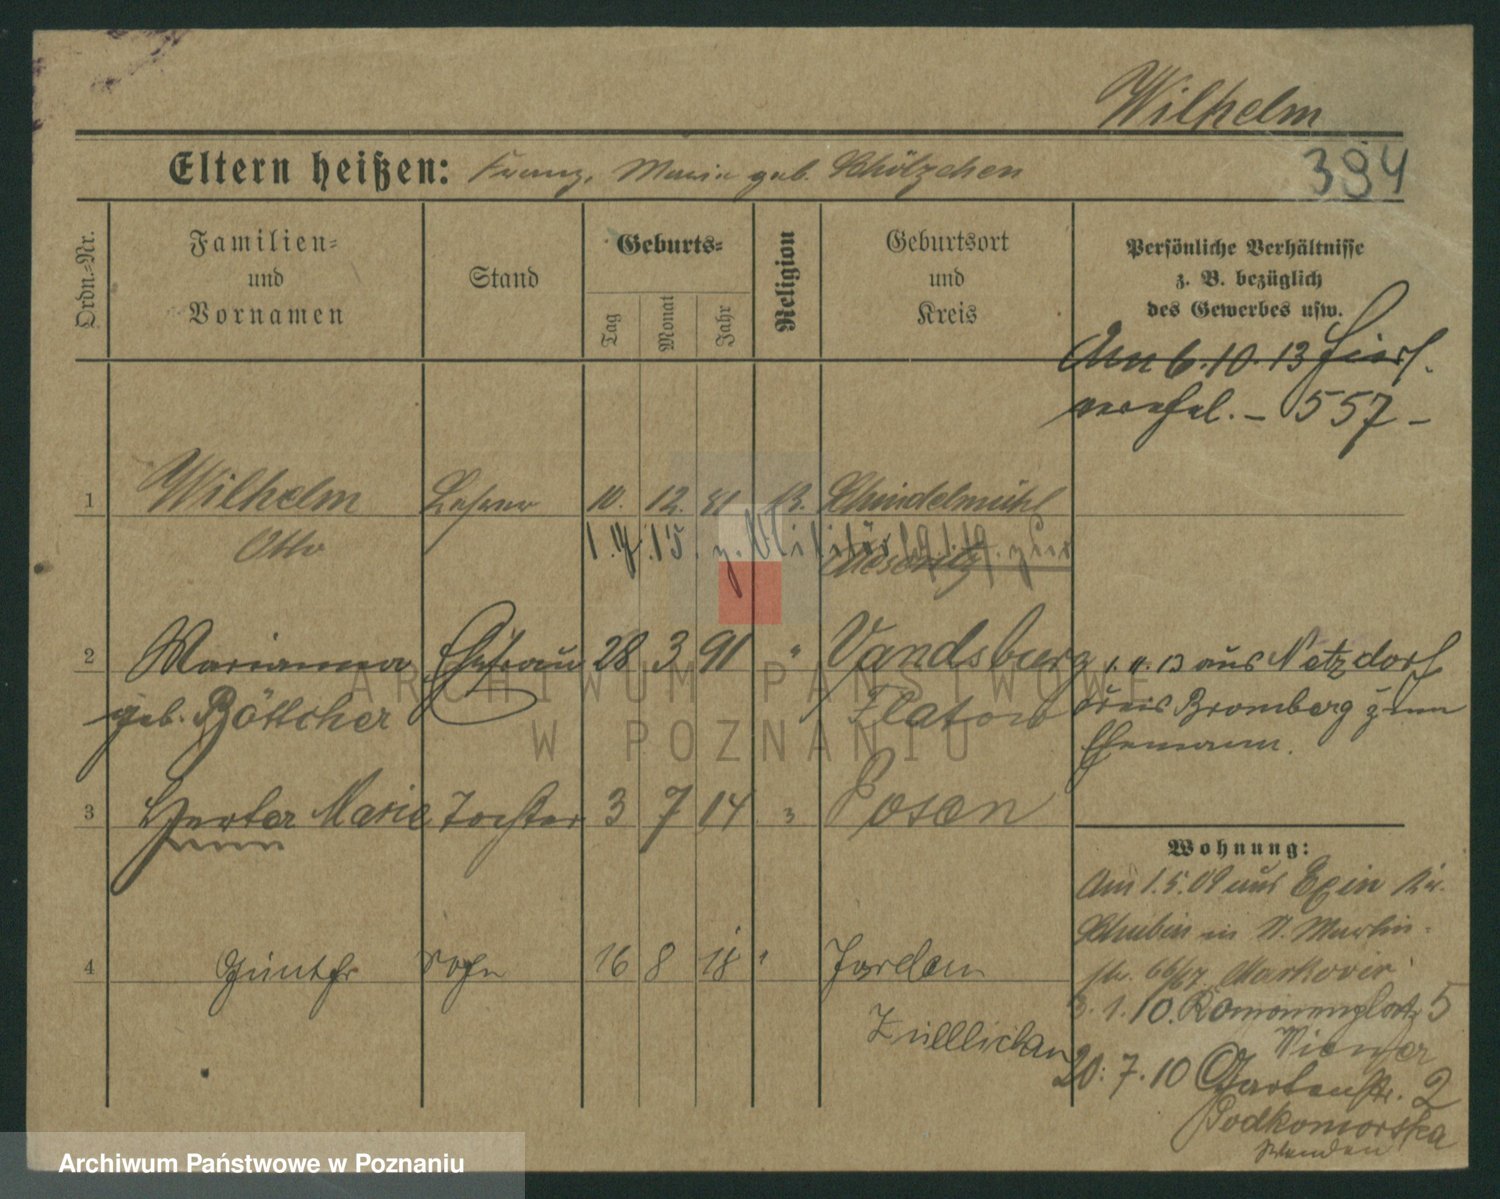 Wilhelm
Eltern heißen: Franz, Maria geb. Schölzchen
394
Ordn.=Nr.
Familien=
und
Vornamen
Stand
Geburts=
Tag
Monat
Jahr
Religion
Geburtsort
und
Kreis
Persönliche Verhältnisse
z. B. bezüglich
des Gewerbes usw.
Am 6.10.13 hierf.
verehel. – 557 –
1 Wilhelm Lehrer 10. 12. 81 k. Schindelmühl
Otto
1. 15. z. Militär
Meseritz
2 Marianna Ehefrau 28 3 91 " Vandsburg 1.11.13 aus Netzdorf
geb. Böttcher Flatow Kreis Bromberg zum
Ehemann.
3 Herta Marie Tochter 3 7 14 " Posen
4 Günther Sohn 16 8 18 " Jordan
Züllichau
Wohnung:
Am 1.5.09 aus Exin Kr.
Schubin in St. Martin-
str. 66/67 Markovir
3.1.10. Romonenplatz 5
Wiener
20.7.10 Gartenstr. 2
Podkomorska
ARCHIWUM PAŃSTWOWE
W POZNANIU
Archiwum Państwowe w Poznaniu